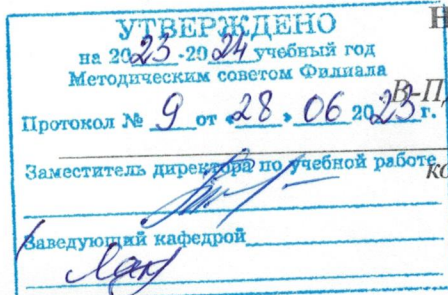 УТВЕРЖДЕНО
на 2023-2024 учебный год
Методическим советом Филиала
В-П
Протокол № 9 от «28» 06 2023 г.
Заместитель директора по учебной работе
Заведующий кафедрой